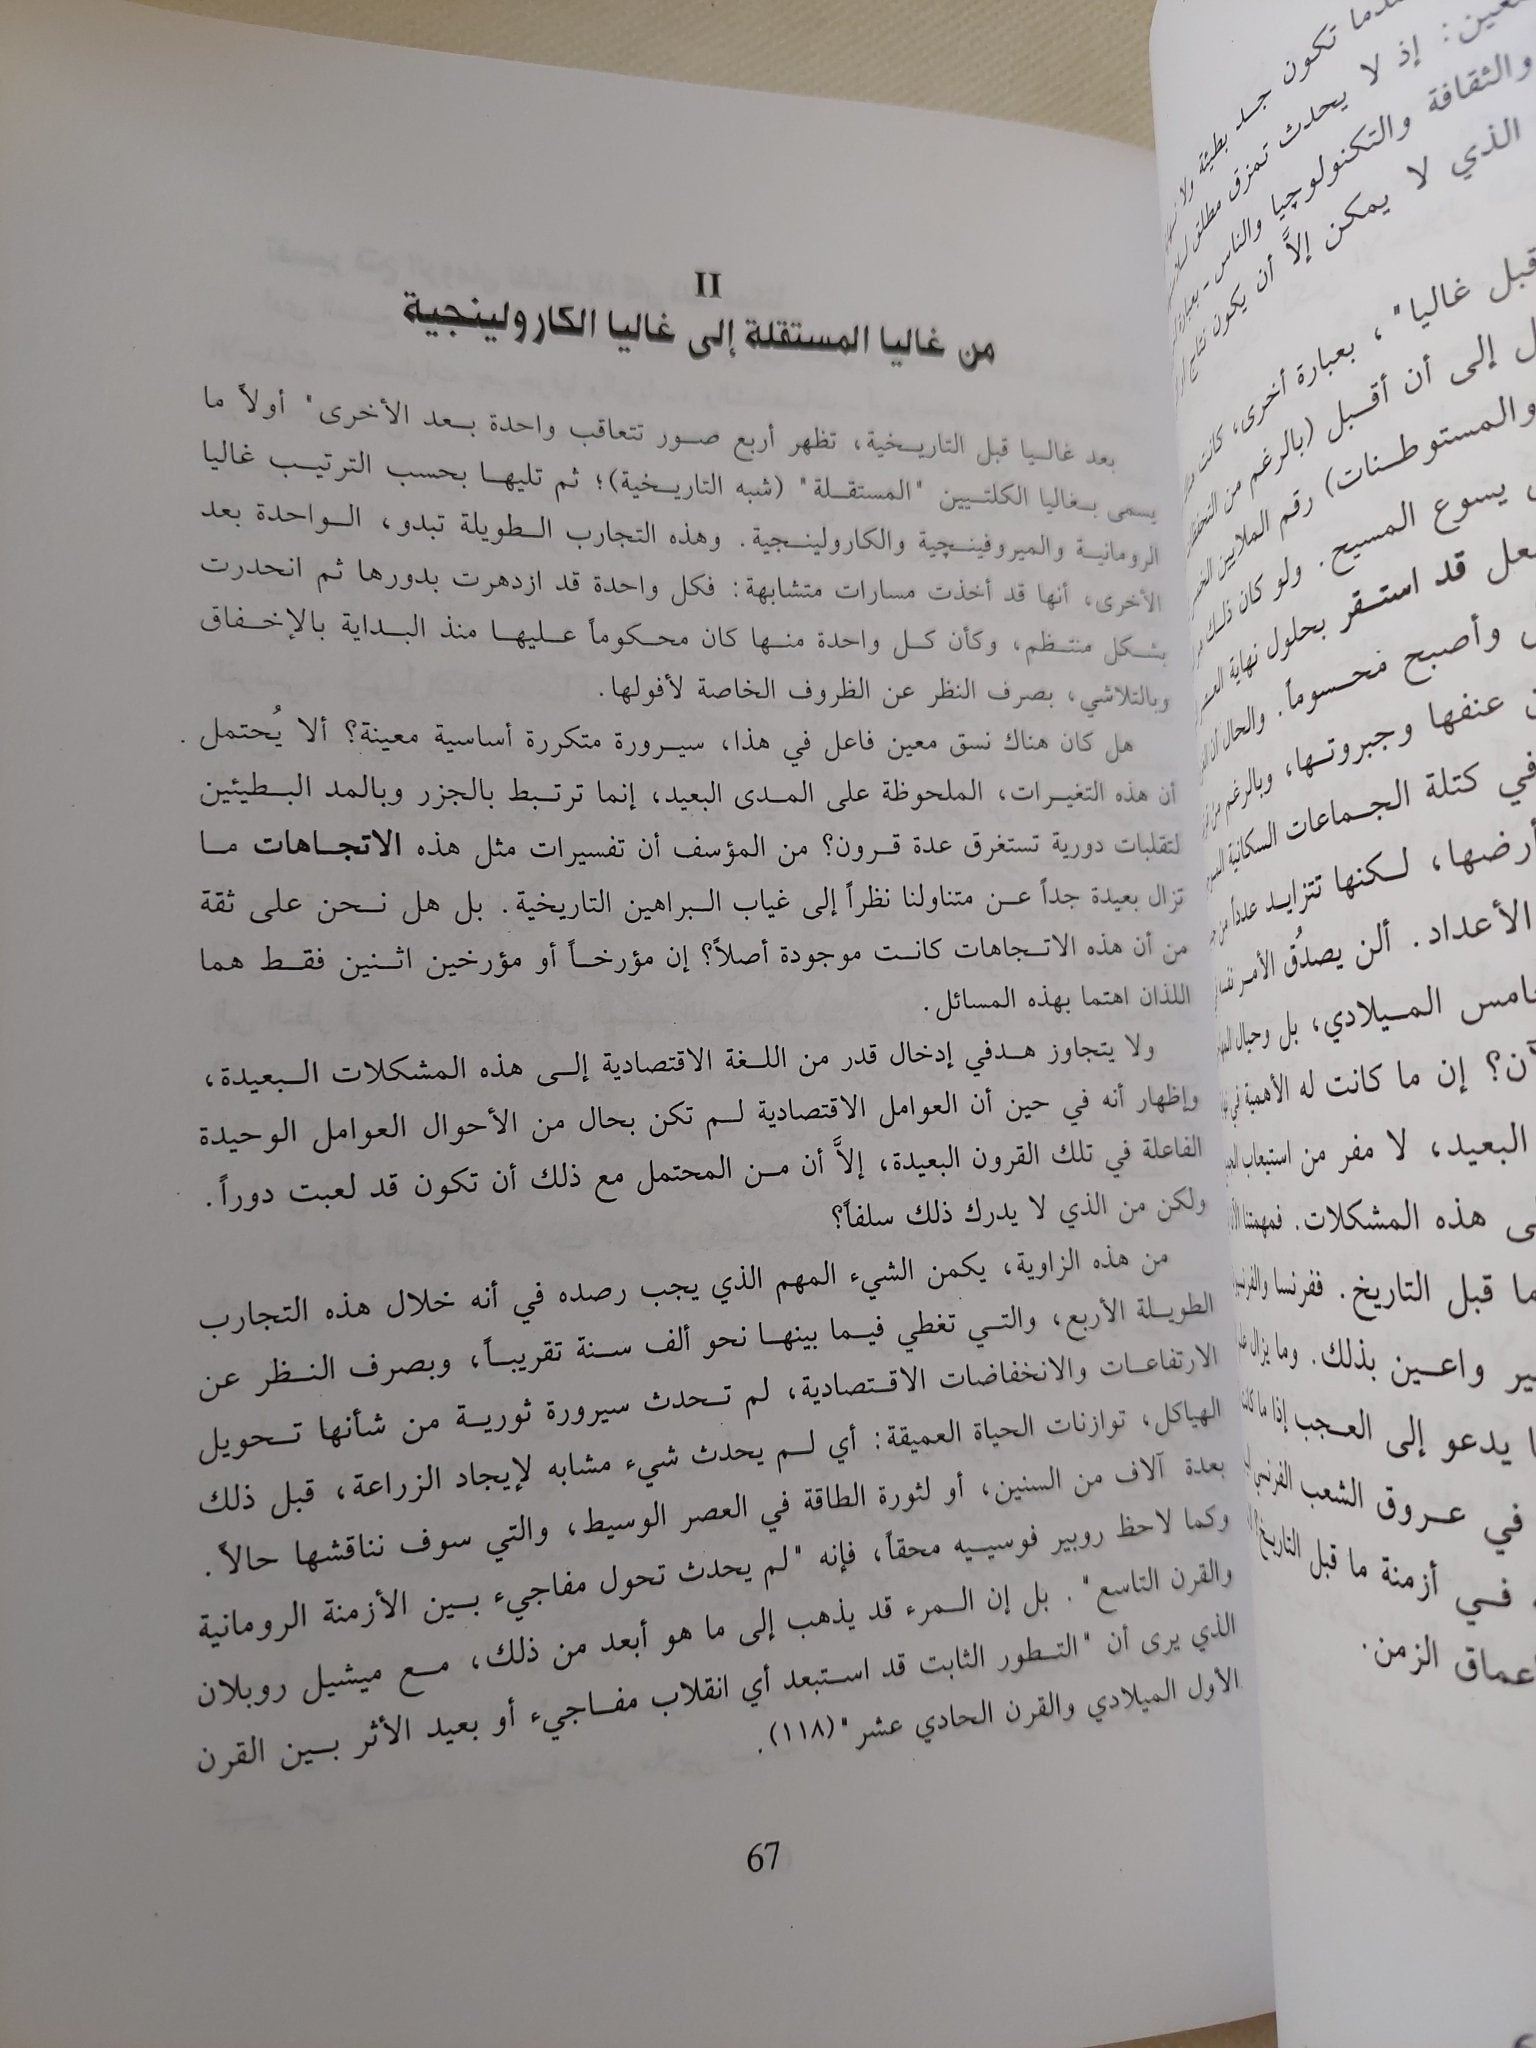 عندما تكون جد بطيئة ولا
إذ لا يحدث تمزق مطلق
والثقافة والتكنولوجيا والناس - بعبارة
الذي لا يمكن إلاَّ أن يكون نتاج
قبل غاليا"، بعبارة أخرى، كانت
إلى أن أقبل (بالرغم من
والمستوطنات) رقم الملايين
يسوع المسيح. ولو كان ذلك
قد استقر بحلول نهاية
وأصبح محسوماً. والحال أن
عنفها وجبروتها، وبالرغم من
في كتلة الجماعات السكانية
أرضها، لكنها تتزايد عدداً من
الأعداد. ألن يصدُق الأمر نفسه
الميلادي، بل وحيال
إن ما كانت له الأهمية في
البعيد، لا مفر من استيعاب
هذه المشكلات. فمهمتنا
ما قبل التاريخ. ففرنسا
واعين بذلك. وما يزال
يدعو إلى العجب إذا ما كانت
في عروق الشعب الفرنسي
في أزمنة ما قبل التاريخ
أعماق الزمن.
II
من غاليا المستقلة إلى غاليا الكارولينجية
بعد غاليا قبل التاريخية، تظهر أربع صور تتعاقب واحدة بعد الأخرى" أولاً ما
يسمى بغاليا الكلتيين "المستقلة" (شبه التاريخية)؛ ثم تليها بحسب الترتيب غاليا
الرومانية والميروفينچية والكارولينجية. وهذه التجارب الطويلة تبدو، الواحدة بعد
الأخرى، أنها قد أخذت مسارات متشابهة: فكل واحدة قد ازدهرت بدورها ثم انحدرت
بشكل منتظم، وكأن كل واحدة منها كان محكوماً عليها منذ البداية بالإخفاق
وبالتلاشي، بصرف النظر عن الظروف الخاصة لأفولها.
هل كان هناك نسق معين فاعل في هذا، سيرورة متكررة أساسية معينة؟ ألا يُحتمل
أن هذه التغيرات، الملحوظة على المدى البعيد، إنما ترتبط بالجزر وبالمد البطيئين
لتقلبات دورية تستغرق عدة قرون؟ من المؤسف أن تفسيرات مثل هذه الاتجاهات ما
تزال بعيدة جداً عن متناولنا نظراً إلى غياب البراهين التاريخية. بل هل نحن على ثقة
من أن هذه الاتجاهات كانت موجودة أصلاً؟ إن مؤرخاً أو مؤرخين اثنين فقط هما
اللذان اهتما بهذه المسائل.
ولا يتجاوز هدفي إدخال قدر من اللغة الاقتصادية إلى هذه المشكلات البعيدة،
وإظهار أنه في حين أن العوامل الاقتصادية لم تكن بحال من الأحوال العوامل الوحيدة
الفاعلة في تلك القرون البعيدة، إلاَّ أن من المحتمل مع ذلك أن تكون قد لعبت دوراً.
ولكن من الذي لا يدرك ذلك سلفاً؟
من هذه الزاوية، يكمن الشيء المهم الذي يجب رصده في أنه خلال هذه التجارب
الطويلة الأربع، والتي تغطي فيما بينها نحو ألف سنة تقريباً، وبصرف النظر عن
الارتفاعات والانخفاضات الاقتصادية، لم تحدث سيرورة ثورية من شأنها تحويل
الهياكل، توازنات الحياة العميقة: أي لم يحدث شيء مشابه لإيجاد الزراعة، قبل ذلك
بعدة آلاف من السنين، أو لثورة الطاقة في العصر الوسيط، والتي سوف نناقشها حالاً.
وكما لاحظ روبير فوسييه محقاً، فإنه "لم يحدث تحول مفاجيء بين الأزمنة الرومانية
والقرن التاسع". بل إن المرء قد يذهب إلى ما هو أبعد من ذلك، مع ميشيل روبلان
الذي يرى أن "التطور الثابت قد استبعد أي انقلاب مفاجيء أو بعيد الأثر بين القرن
الأول الميلادي والقرن الحادي عشر"(١١٨).
67